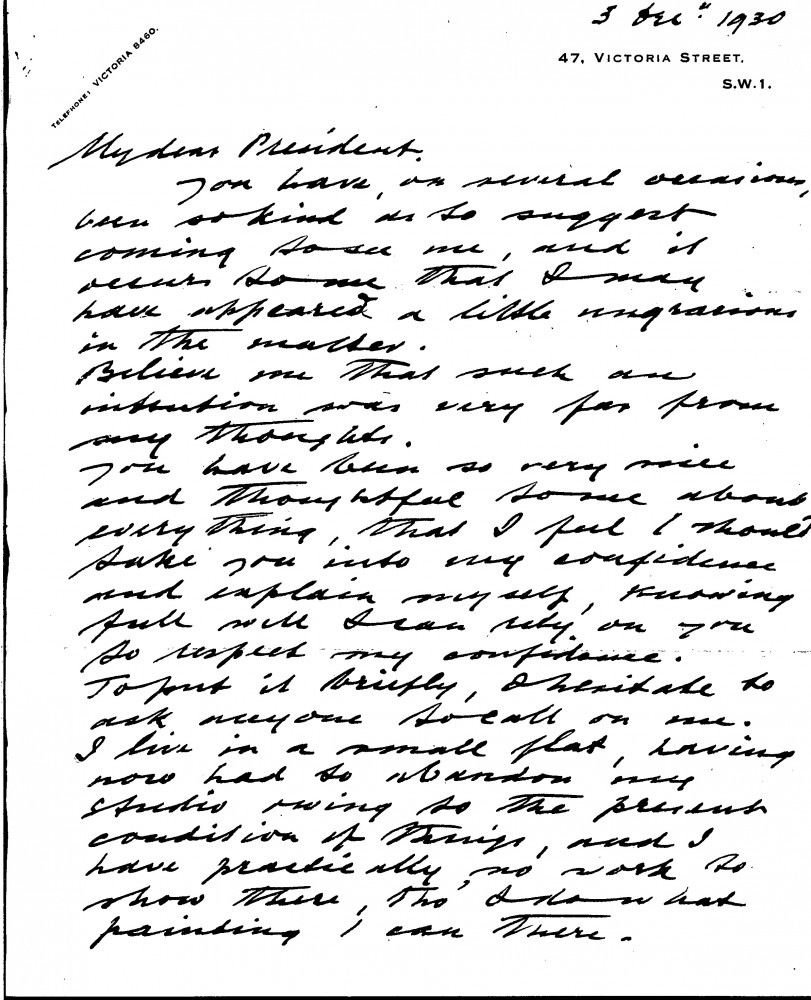 3 Decr. 1930
TELEPHONE: VICTORIA 8460.
47, VICTORIA STREET,
S.W.1.
My dear President.
You have, on several occasions,
been so kind as to suggest
coming to see me, and it
occurs to me that I may
have appeared a little ungracious
in the matter.
Believe me that such an
intention was very far from
my thoughts.
You have been so very nice
and thoughtful to me about
everything, that I feel I should
take you into my confidence
and explain myself, knowing
full well I can rely on you
to respect my confidence.
To put it briefly, I hesitate to
ask anyone to call on me.
I live in a small flat, having
now had to abandon my
studio owing to the present
condition of things, and I
have practically no work to
show there, tho' I do what
painting I can there.